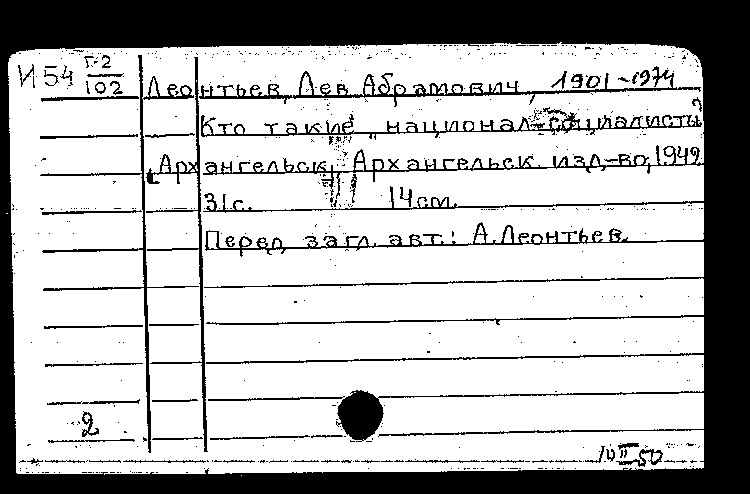 И54 Г-2/102 Леонтьев, Лев Абрамович, 1901-1974
Кто такие „национал-социалисты?
Архангельск, Архангельск. изд-во, 1942
31с. 14см.
Перед загл. авт.: А.Леонтьев.
2
10 II 50